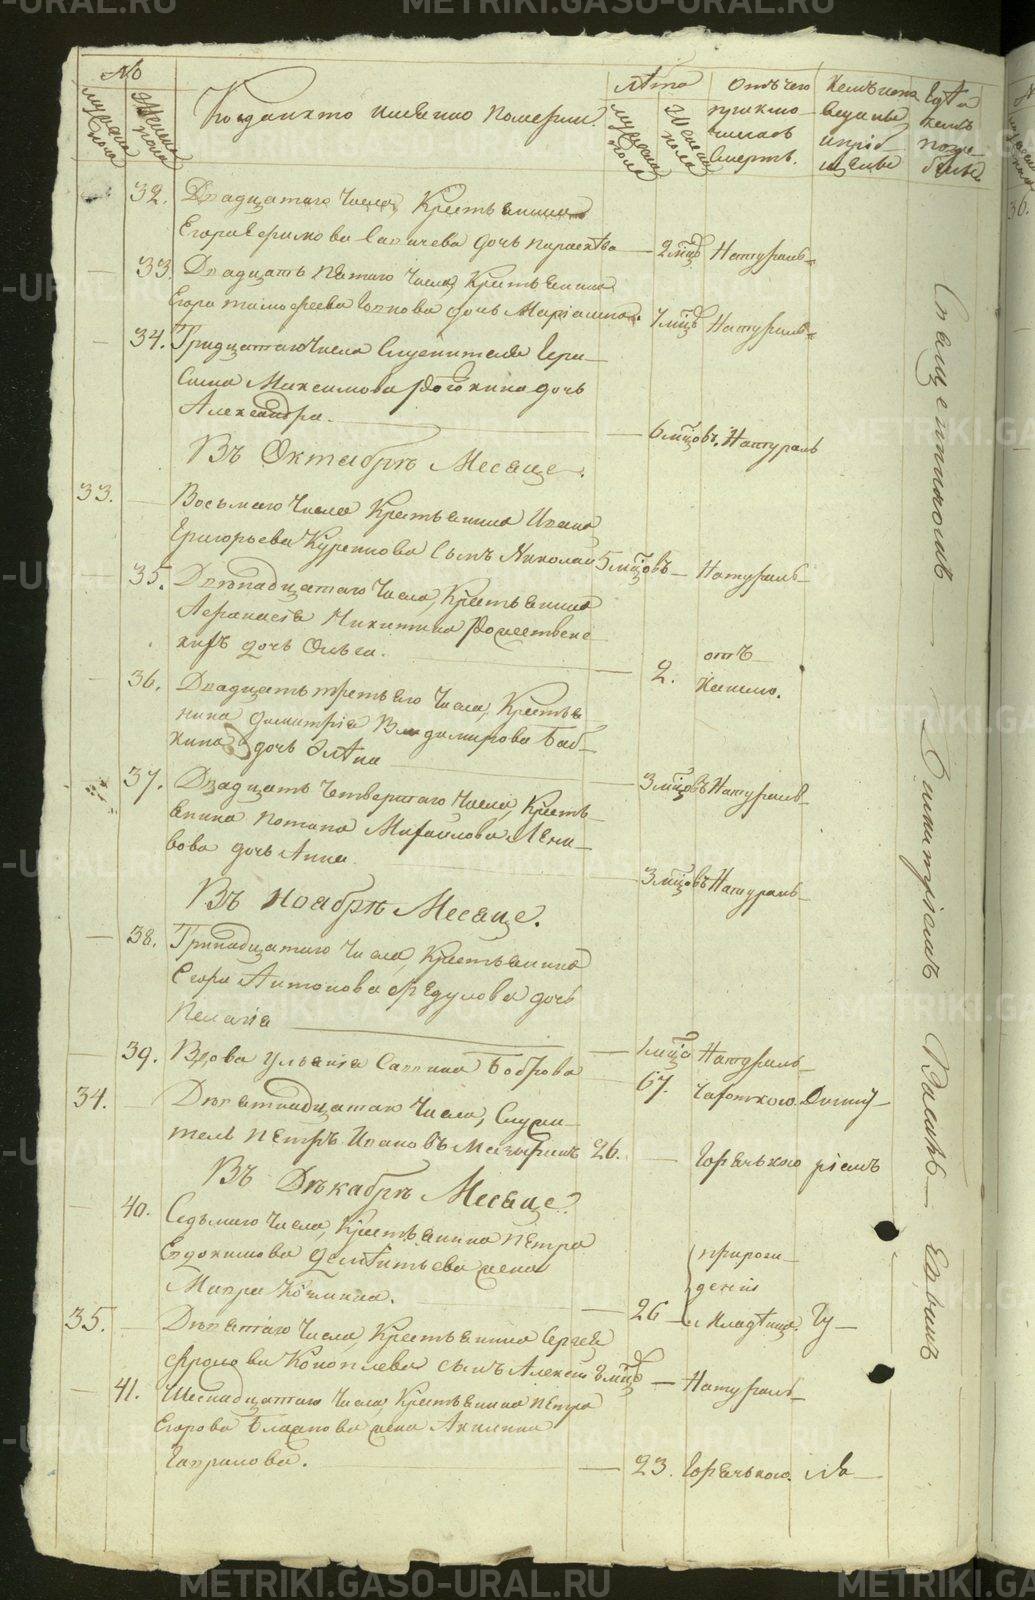 №
мужеска пола
женска пола
Когда и кто имянно померли.
лѣта
мужеска пола
женска пола
Отъ чего приключилась смерть.
Кемъ исповеданы и приобщены
Где и кемъ погребены
32. Двадцатаго Числа, Крестьянина
Егора Ефимова дочь Параскѣва — 2 мцъ Натураль-
33. Двадцать пятаго Числа Крестьянина
Егора Тимофеева дочь Маріанна. 7 мцъ Натураль-
34. Тридцатаго Числа Служителя Гера-
сима Максимова дочь
Александра. — 6 мцовъ. Натураль
Въ Октябрѣ Месяце.
33. Восьмаго Числа Крестьянина Ивана
Григорьева сынъ Николай 5 мцовъ — Натураль-
35. Двѣнадцатаго Числа, Крестьянина
Афанасія Никитина Рожественс
кихъ дочь Ольга. — 2. отъ
Кашлю.
36. Двадцать третьяго Числа, Крестья
нина Димитрія Владимирова Баб-
кина дочь Элѣна — 3 мцовъ Натураль-
37. Двадцать четвертаго Числа, Кресть-
янина Потапа Михайлова Лени-
вова дочь Анна. — 3 мцовъ Натураль-
Въ Ноябрѣ Месяце.
38. Тринадцатаго Числа, Крестьянина
Егора Антонова Федулова дочь
Пелагія — 1 мца Натураль-
39. Вдова Ульянія Саввина Боброва — 67. Чахоткою. Димит-
34. Девятнадцатаго Числа, Служи-
тель Петръ Ивановъ 26. — Горячькою ріемъ
Въ Декабрѣ Месяце.
40. Седьмаго Числа, Крестьянина Петра
Евдокимова Дементьева жена
Мавра — 26 при рож-
деніи
младѣнца.
35. Девятаго Числа, Крестьянина Сергея
Фролова Коноплева сынъ Алексѣй мцъ — Натураль-
41. Шеснадцатаго Числа, Крестьянина Петра
Егорова жена Акилина
Гаврилова. — 23. Горячькою.
Священникомъ — Димитріемъ Василь—евымъ
36.